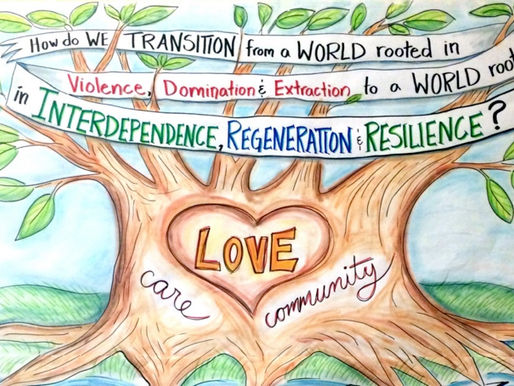 How do WE TRANSITION from a WORLD rooted in
Violence, Domination & Extraction to a WORLD root
in INTERDEPENDENCE, REGENERATION & RESILIENCE?
LOVE
care
community